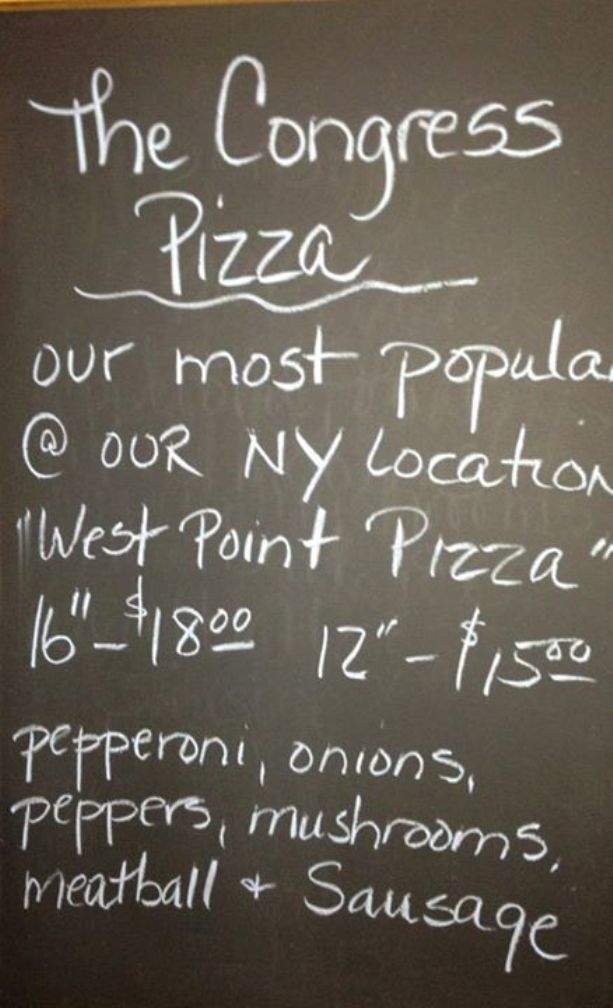 The Congress
Pizza
our most popula
@ OUR NY Location
"West Point Pizza"
16"-$1800 12"-$1500
pepperoni, onions,
peppers, mushrooms,
meatball + Sausage